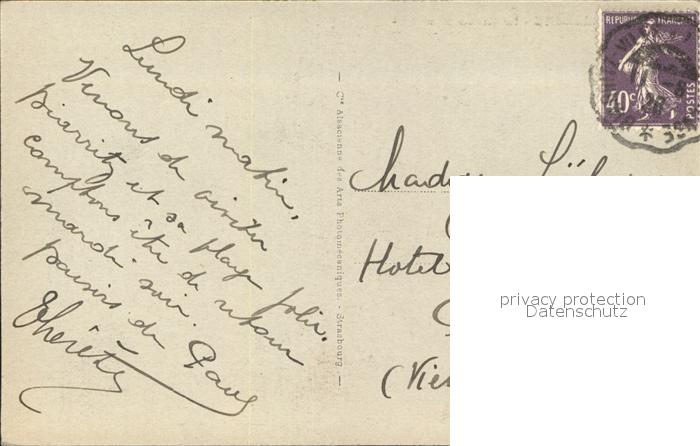 Lundi matin.
Venons de visiter
Biarritz et sa plage jolie.
comptons être de retour
mardi soir.
baisers de Paul
Thérèse
Cie Alsacienne des Arts Photomécaniques. - Strasbourg.
REPUBLIQUE FRANÇAISE
40c
POSTES
Madame
Hotel
privacy protection
Datenschutz